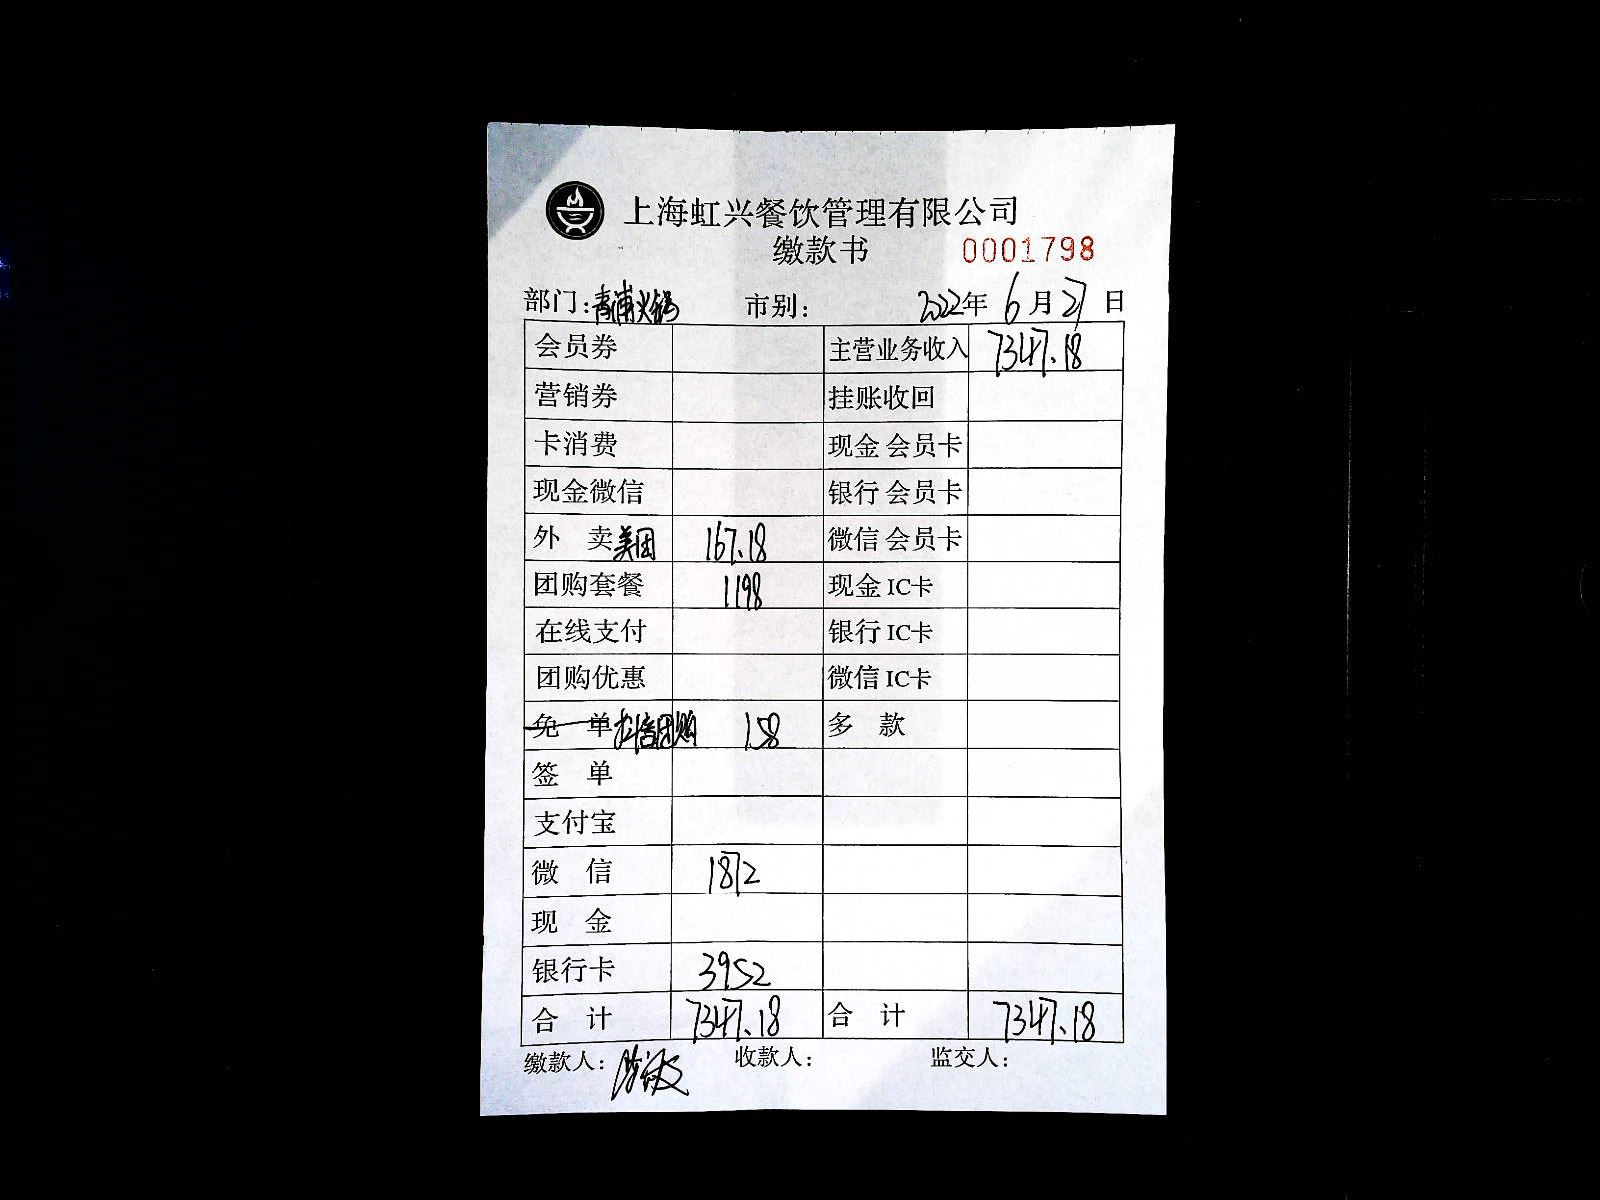 上海虹兴餐饮管理有限公司
缴款书 0001798
部门:青浦火锅 市别: 2022年6月27日
会员券 主营业务收入 7347.18
营销券 挂账收回
卡消费 现金 会员卡
现金微信 银行 会员卡
外 卖美团 167.18 微信 会员卡
团购套餐 1198 现金 IC卡
在线支付 银行 IC卡
团购优惠 微信 IC卡
免 单抖音团购 158 多 款
签 单
支付宝
微 信 1872
现 金
银行卡 3952
合 计 7347.18 合 计 7347.18
缴款人: 收款人: 监交人: